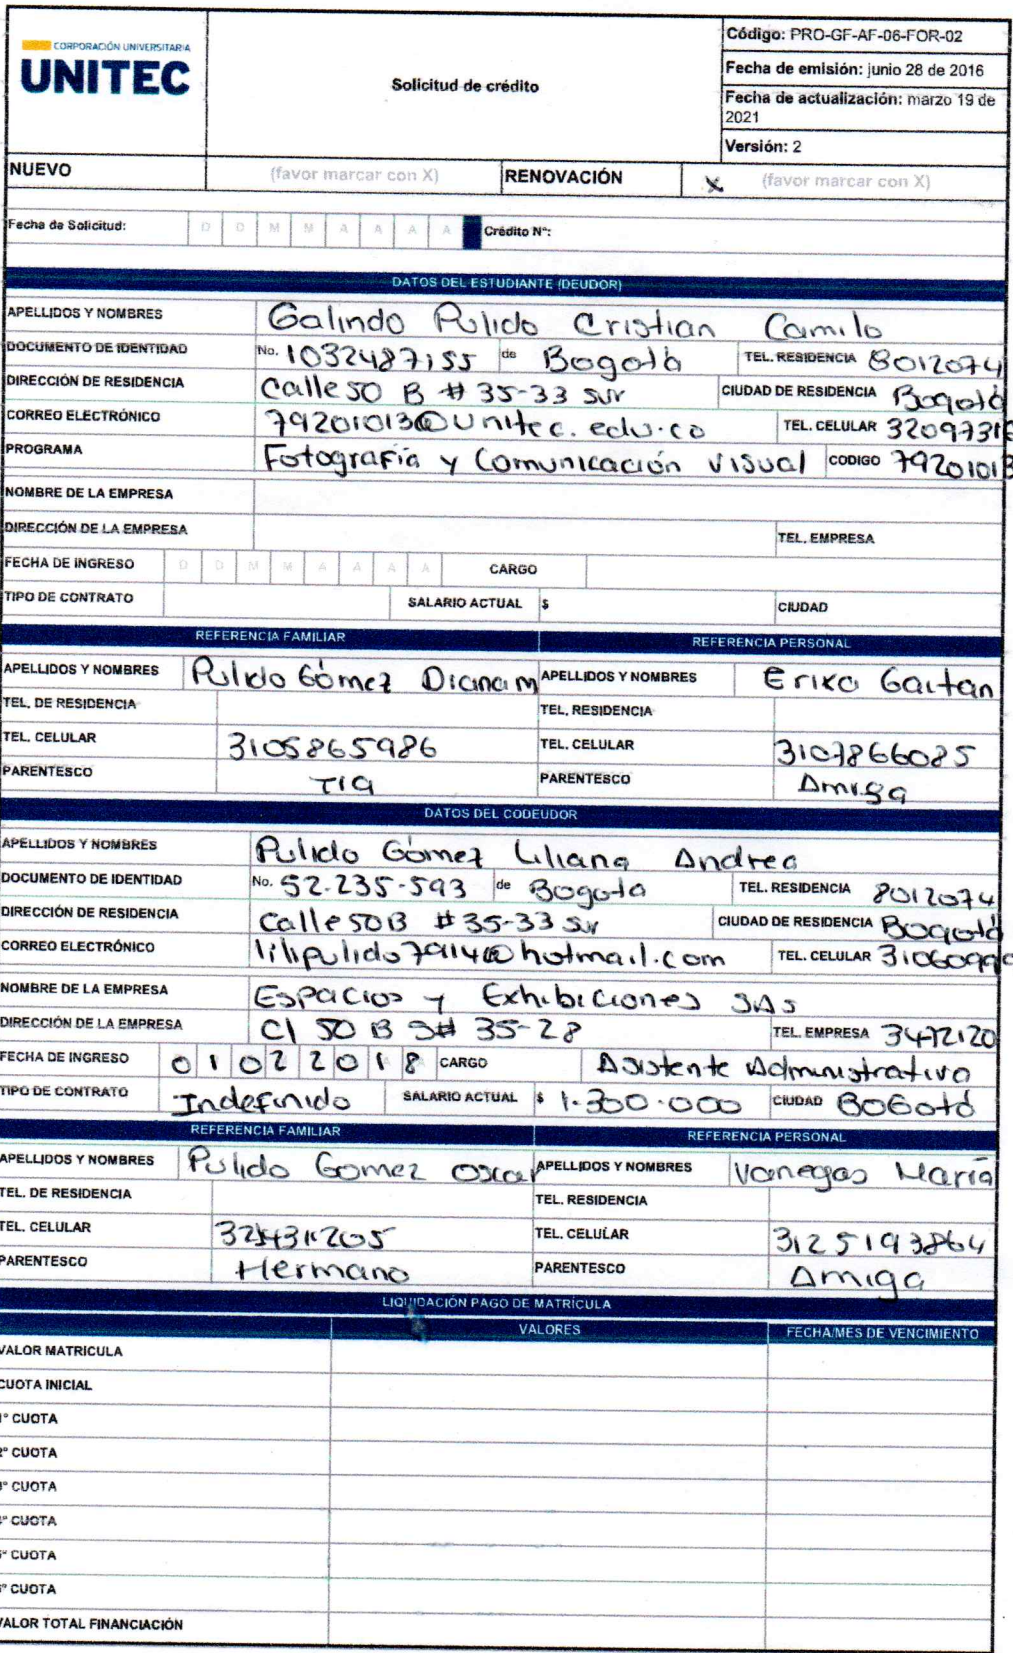 CORPORACIÓN UNIVERSITARIA
UNITEC
Solicitud de crédito
Código: PRO-GF-AF-06-FOR-02
Fecha de emisión: junio 28 de 2016
Fecha de actualización: marzo 19 de 2021
Versión: 2
NUEVO (favor marcar con X) RENOVACIÓN X (favor marcar con X)
Fecha de Solicitud: D D M M A A A A Crédito N°:
DATOS DEL ESTUDIANTE (DEUDOR)
APELLIDOS Y NOMBRES Galindo Pulido Cristian Camilo
DOCUMENTO DE IDENTIDAD No. 1032487155 de Bogotá TEL. RESIDENCIA 8012074
DIRECCIÓN DE RESIDENCIA Calle 50 B # 35-33 sur CIUDAD DE RESIDENCIA Bogotá
CORREO ELECTRÓNICO 79201013@unitec.edu.co TEL. CELULAR 32097316
PROGRAMA Fotografía y Comunicación visual CODIGO 79201013
NOMBRE DE LA EMPRESA
DIRECCIÓN DE LA EMPRESA TEL. EMPRESA
FECHA DE INGRESO D D M M A A A A CARGO
TIPO DE CONTRATO SALARIO ACTUAL $ CIUDAD
REFERENCIA FAMILIAR REFERENCIA PERSONAL
APELLIDOS Y NOMBRES Pulido Gómez Diana M APELLIDOS Y NOMBRES Erika Gaitan
TEL. DE RESIDENCIA TEL. RESIDENCIA
TEL. CELULAR 3105865986 TEL. CELULAR 3107866085
PARENTESCO TIA PARENTESCO Amiga
DATOS DEL CODEUDOR
APELLIDOS Y NOMBRES Pulido Gómez Liliana Andrea
DOCUMENTO DE IDENTIDAD No. 52.235.593 de Bogota TEL. RESIDENCIA 8012074
DIRECCIÓN DE RESIDENCIA Calle 50B # 35-33 sur CIUDAD DE RESIDENCIA Bogotá
CORREO ELECTRÓNICO lilipulido7914@hotmail.com TEL. CELULAR
NOMBRE DE LA EMPRESA Espacios y Exhibiciones SAS
DIRECCIÓN DE LA EMPRESA Cl 50 B S# 35-28 TEL. EMPRESA 3472120
FECHA DE INGRESO 0 1 0 2 2 0 1 8 CARGO Asistente Administrativa
TIPO DE CONTRATO Indefinido SALARIO ACTUAL $ 1.300.000 CIUDAD BOGotá
REFERENCIA FAMILIAR REFERENCIA PERSONAL
APELLIDOS Y NOMBRES Pulido Gomez Oscar APELLIDOS Y NOMBRES Vanegas María
TEL. DE RESIDENCIA TEL. RESIDENCIA
TEL. CELULAR TEL. CELULAR 3125193864
PARENTESCO Hermano PARENTESCO Amiga
LIQUIDACIÓN PAGO DE MATRÍCULA
VALORES FECHA/MES DE VENCIMIENTO
VALOR MATRICULA
CUOTA INICIAL
1° CUOTA
2° CUOTA
3° CUOTA
4° CUOTA
5° CUOTA
6° CUOTA
VALOR TOTAL FINANCIACIÓN